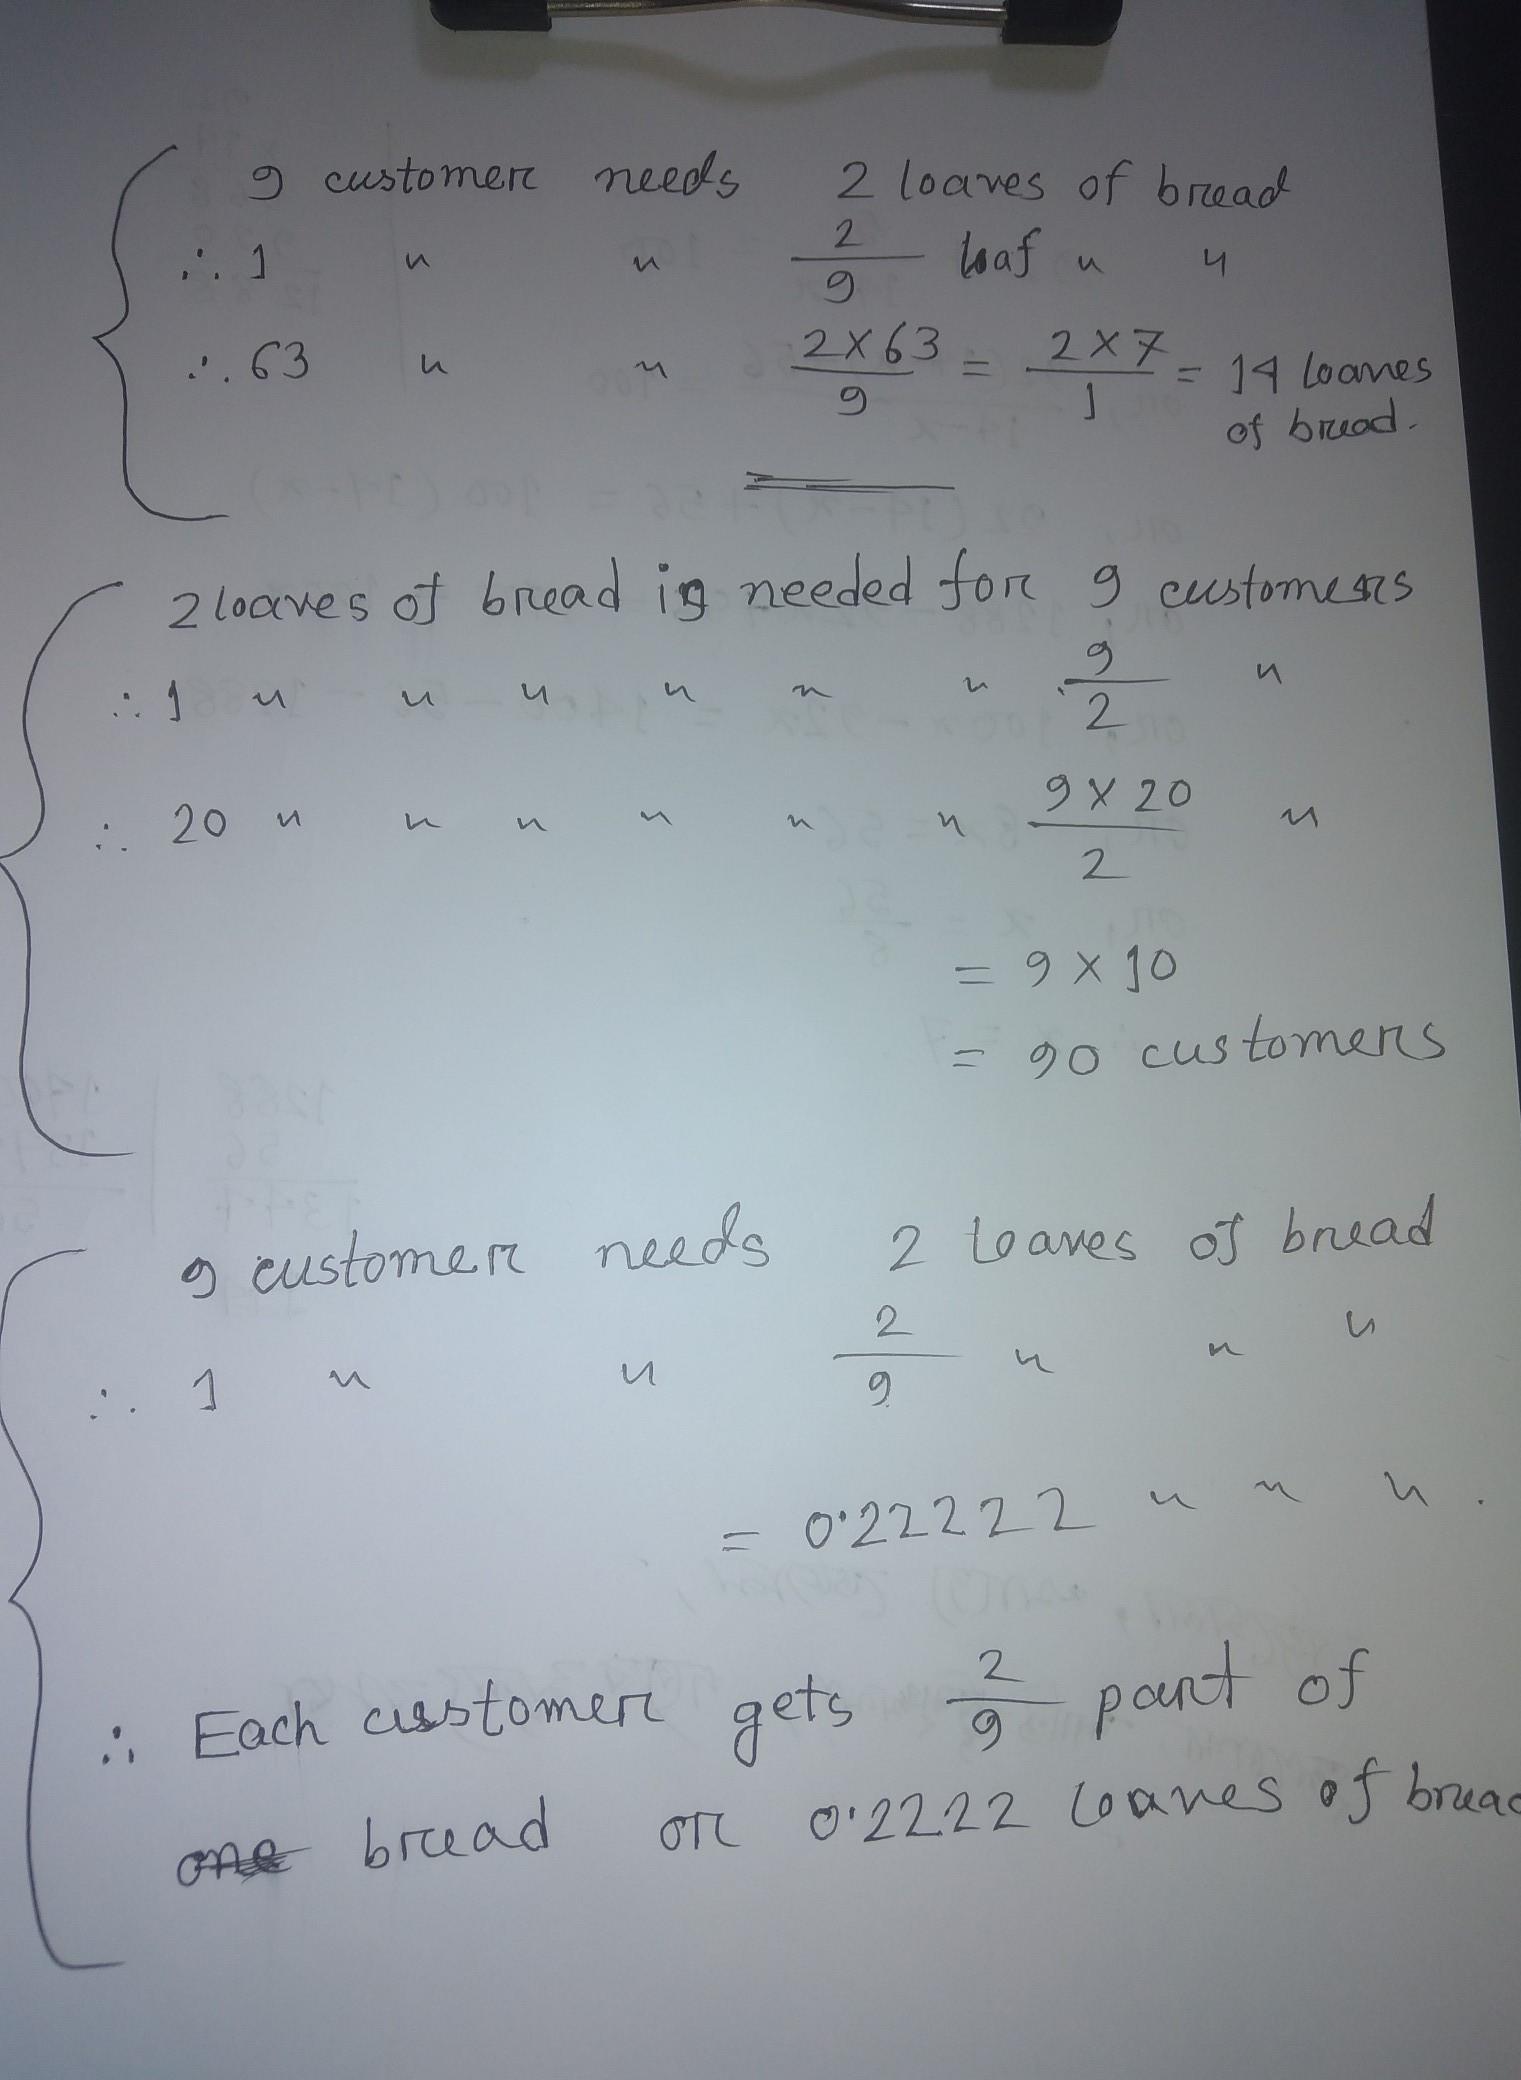 9 customer needs 2 loaves of bread
∴ 1 " " 2/9 loaf " "
∴ 63 " " 2×63/9 = 2×7/1 = 14 loaves
of bread.
2 loaves of bread is needed for 9 customers
∴ 1 " " " " " " 9/2 "
∴ 20 " " " " " " 9×20/2 "
= 9×10
= 90 customers
9 customer needs 2 loaves of bread
∴ 1 " " 2/9 " " "
= 0.22222 " " " .
∴ Each customer gets 2/9 part of
bread or 0.2222 loaves of bread